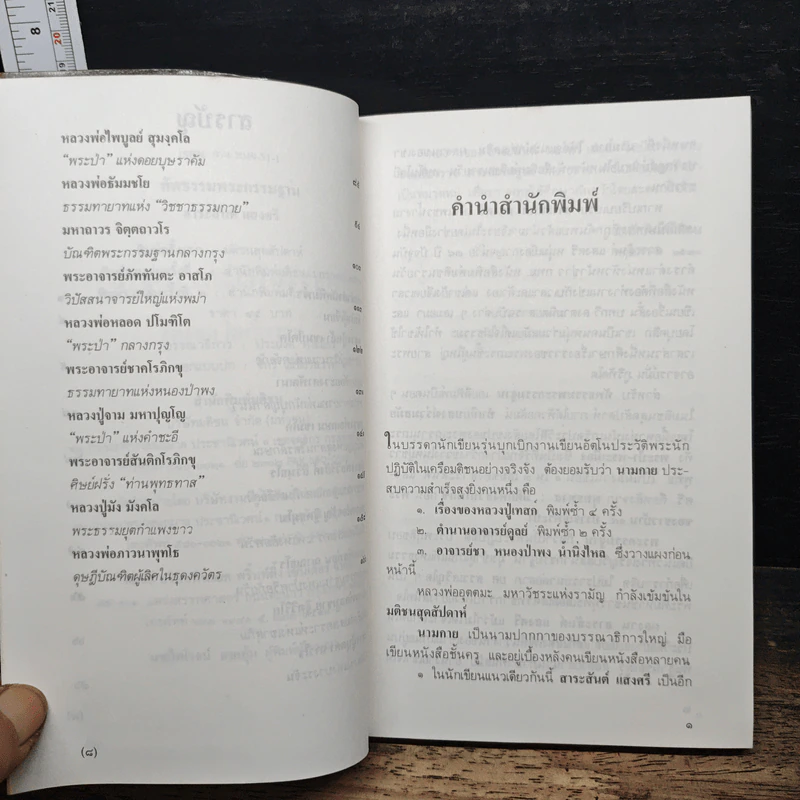 หลวงพ่อไพบูลย์ สุมงฺคโล
“พระป่า” แห่งดอยบุษราคัม
หลวงพ่อธัมมชโย ๘๕
ธรรมทายาทแห่ง “วิชชาธรรมกาย”
มหาถาวร จิตฺตถาวโร
บัณฑิตพระกรรมฐานกลางกรุง
พระอาจารย์ภัททันตะ อาสโภ
วิปัสสนาจารย์ใหญ่แห่งพม่า
หลวงพ่อหลอด ปโมทิโต
“พระป่า” กลางกรุง
พระอาจารย์ชาคโรภิกขุ
ธรรมทายาทแห่งหนองป่าพง
หลวงปู่จาม มหาปุญฺโญ
“พระป่า” แห่งคำชะอี
พระอาจารย์สันติกโรภิกขุ
ศิษย์ฝรั่ง “ท่านพุทธทาส”
หลวงปู่มัง มังคโล
พระธรรมยุตกำแพงขาว
หลวงพ่อภาวนาพุทโธ
ดุษฎีบัณฑิตผู้เลิศในธุดงควัตร
(๘)
คำนำสำนักพิมพ์
ในบรรดานักเขียนรุ่นบุกเบิกงานเขียนอัตโนประวัติพระนัก
ปฏิบัติในเครือมติชนอย่างจริงจัง ต้องยอมรับว่า นามกาย ประ-
สบความสำเร็จสูงยิ่งคนหนึ่ง คือ
๑. เรื่องของหลวงปู่เทสก์ พิมพ์ซ้ำ ๔ ครั้ง
๒. ตำนานอาจารย์ดูลย์ พิมพ์ซ้ำ ๒ ครั้ง
๓. อาจารย์ชา หนองป่าพง น้ำนิ่งไหล ซึ่งวางแผงก่อน
หน้านี้
หลวงพ่ออุตตมะ มหาวัชระแห่งรามัญ กำลังเข้มข้นใน
มติชนสุดสัปดาห์
นามกาย เป็นนามปากกาของบรรณาธิการใหญ่ มือ
เขียนหนังสือชั้นครู และอยู่เบื้องหลังคนเขียนหนังสือหลายคน
๑ ในนักเขียนแนวเดียวกันนี้ สาระสันต์ แสงศรี เป็นอีก
๑
8
20
21